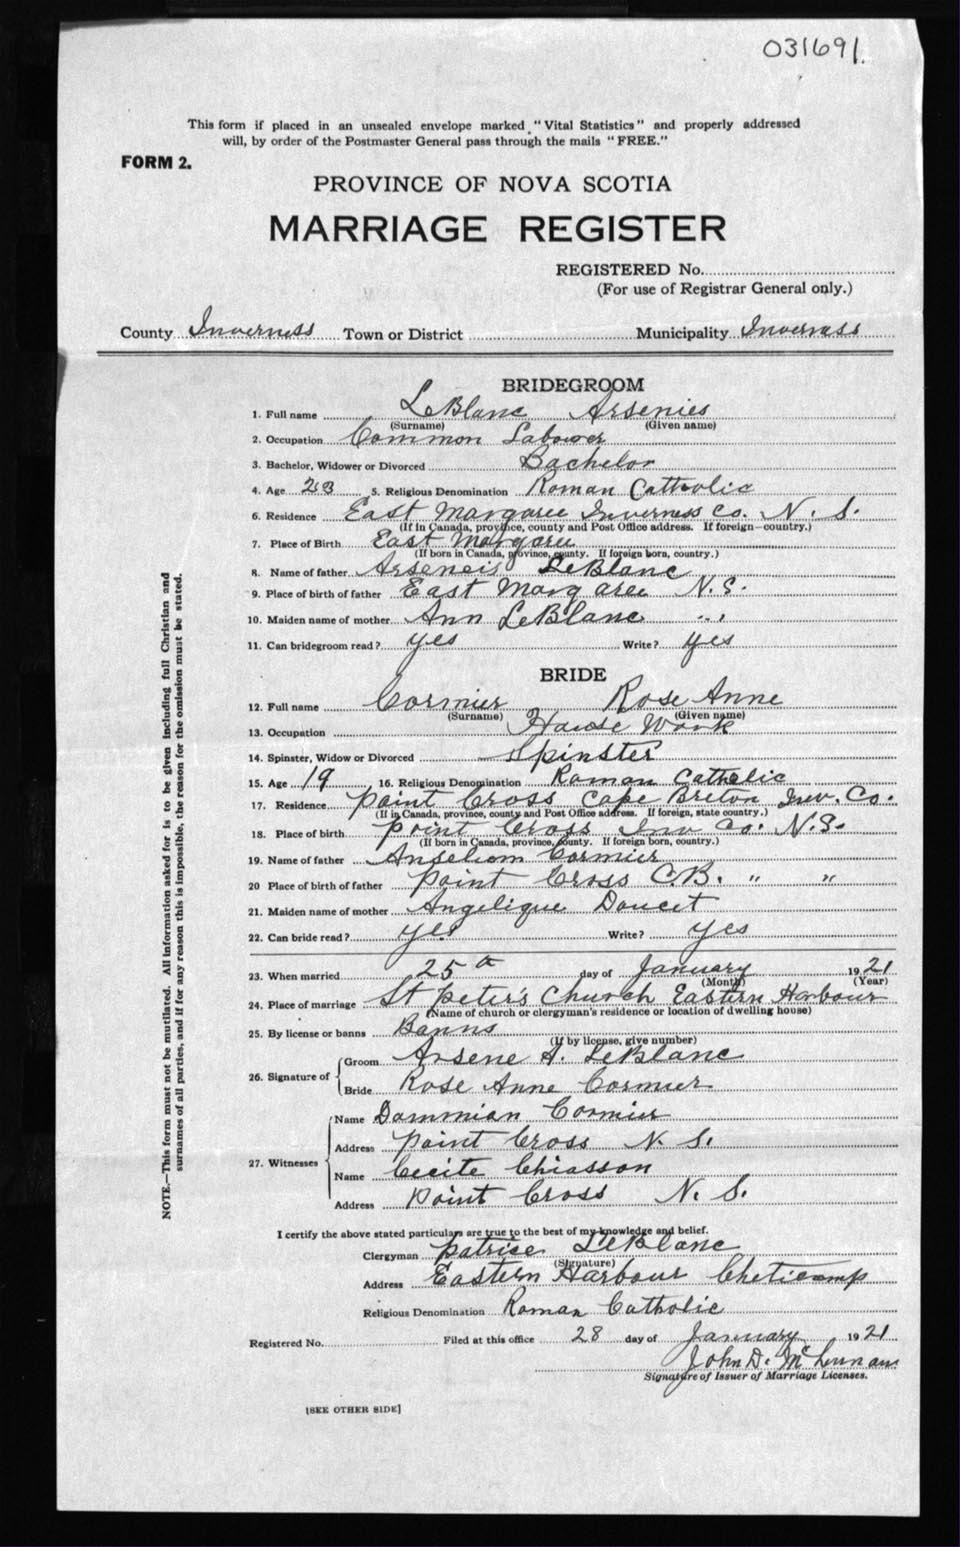 031691.
This form if placed in an unsealed envelope marked "Vital Statistics" and properly addressed
will, by order of the Postmaster General pass through the mails "FREE."
FORM 2.
PROVINCE OF NOVA SCOTIA
MARRIAGE REGISTER
REGISTERED No.
(For use of Registrar General only.)
County Inverness Town or District Municipality Inverness
BRIDEGROOM
1. Full name LeBlanc Arsenies
(Surname) (Given name)
2. Occupation Common Labourer
3. Bachelor, Widower or Divorced Bachelor
4. Age 23 5. Religious Denomination Roman Catholic
6. Residence East Margaree Inverness Co. N. S.
(If in Canada, province, county and Post Office address. If foreign—country.)
7. Place of Birth East Margaree
(If born in Canada, province, county. If foreign born, country.)
8. Name of father Arseneis LeBlanc
9. Place of birth of father East Margaree N.S.
10. Maiden name of mother Ann LeBlanc "
11. Can bridegroom read? yes Write? yes
BRIDE
12. Full name Cormier Rose Anne
(Surname) (Given name)
13. Occupation House Work
14. Spinster, Widow or Divorced Spinster
15. Age 19 16. Religious Denomination Roman Catholic
17. Residence Point Cross Cape Breton Inv. Co.
(If in Canada, province, county and Post Office address. If foreign, state country.)
18. Place of birth Point Cross Inv Co. N.S.
(If born in Canada, province, county. If foreign born, country.)
19. Name of father Cormier
20 Place of birth of father Point Cross C.B. " "
21. Maiden name of mother Angelique Doucet
22. Can bride read? yes Write? yes
23. When married 25th day of January 1921
(Month) (Year)
24. Place of marriage St Peter's Church Eastern Harbour
(Name of church or clergyman's residence or location of dwelling house)
25. By license or banns Banns
(If by license, give number)
26. Signature of Groom Arsene A. LeBlanc
Bride Rose Anne Cormier
27. Witnesses Name Dammian Cormier
Address Point Cross N. S.
Name Cecite Chiasson
Address Point Cross N. S.
I certify the above stated particulars are true to the best of my knowledge and belief.
Clergyman Patrice LeBlanc
(Signature)
Address Eastern Harbour Cheticamp
Religious Denomination Roman Catholic
Registered No. Filed at this office 28 day of January 1921
John D.
Signature of Issuer of Marriage Licenses.
[SEE OTHER SIDE]
NOTE.—This form must not be mutilated. All information asked for is to be given including full Christian and
surnames of all parties, and if for any reason this is impossible, the reason for the omission must be stated.